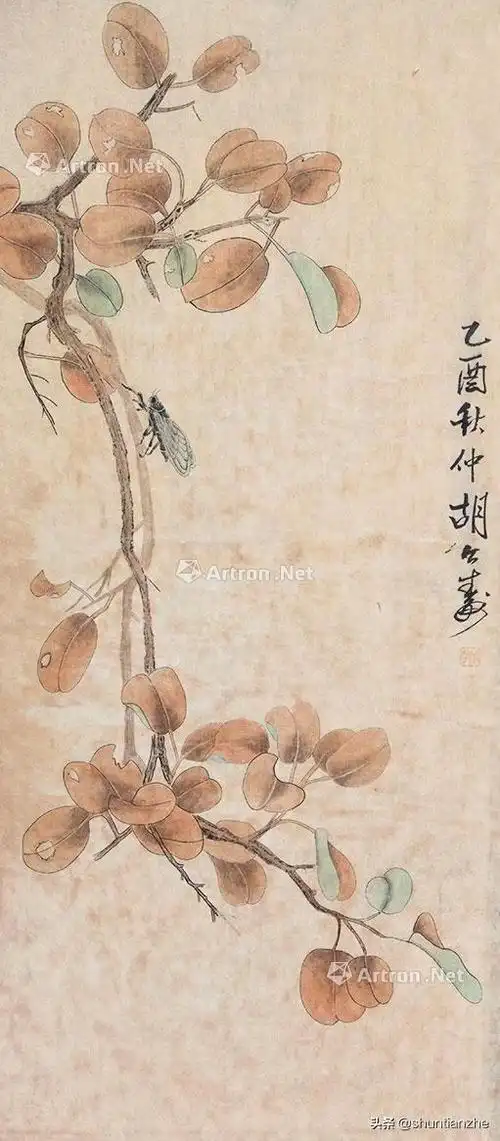 乙酉秋仲胡公寿
Artron.Net
Artron.Net
Artron.Net
头条 @shuntianzhe